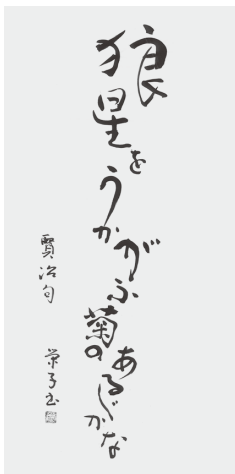 狼星をうかがふ菊のあるじかな
賢治句
栄子書